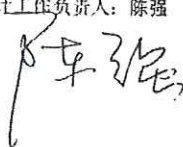 计工作负责人：陈强
陈强